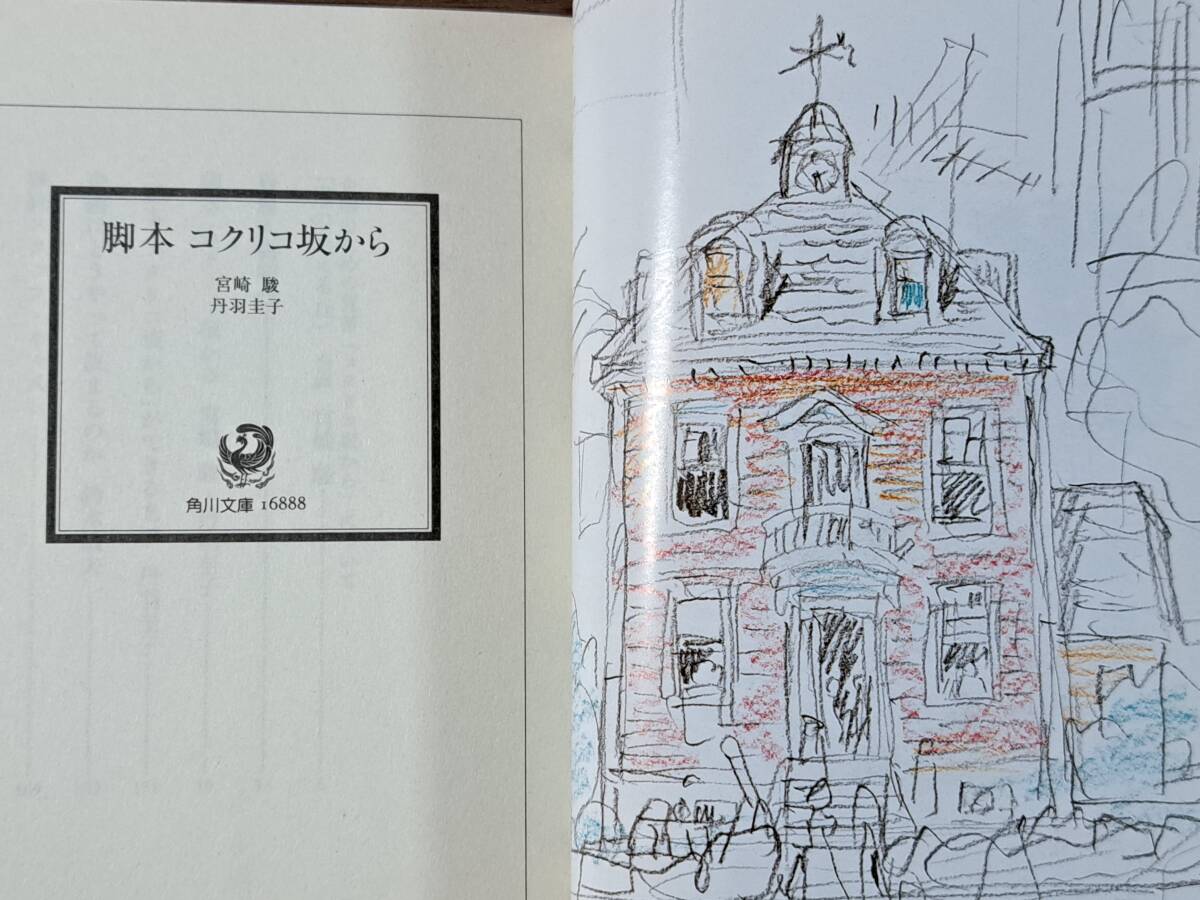 脚本 コクリコ坂から
宮崎 駿
丹羽圭子
角川文庫 16888